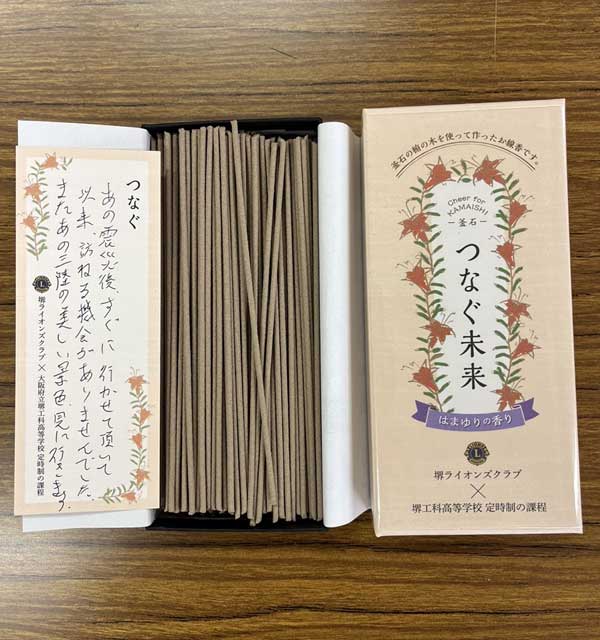 つなぐ
あの震災後、すぐに行かせて頂いて
以来、訪ねる機会がありませんでした。
またあの三陸の美しい景色見に行きます。
堺ライオンズクラブ × 大阪府立堺工科高等学校 定時制の課程
釜石の桧の木を使って作ったお線香です。
Cheer for
KAMAISHI
ー釜石ー
つなぐ未来
はまゆりの香り
L
堺ライオンズクラブ
×
堺工科高等学校 定時制の課程